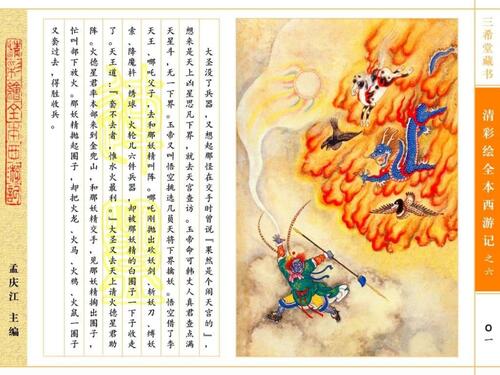 三希堂藏书
清彩绘全本西游记之六
〇一
大圣没了兵器，又想起那怪在交手时曾说『果然是个闹天宫的』，
想来是天上凶星思凡下界，就去天宫查访。玉帝命可韩丈人真君查点满
天星斗，无一下界。玉帝又叫悟空挑选几员天将下界擒妖。悟空借了李
天王、哪吒父子，去和那妖精叫阵。哪吒刚抛出砍妖剑、斩妖刀、缚妖
索、降魔杵、绣球、火轮儿六件兵器，却被那妖精的白圈子一下子收走
了。天王道：『套不去者，惟水火最利。』大圣又去天上请火德星君助
阵。火德星君率本部来到金兜山，和那妖精交手，见那妖精掏出圈子，
忙叫部下放火。那妖精抛起圈子，却把火龙、火马、火鸦、火鼠一圈子
又套过去，得胜收兵。
孟庆江 主编